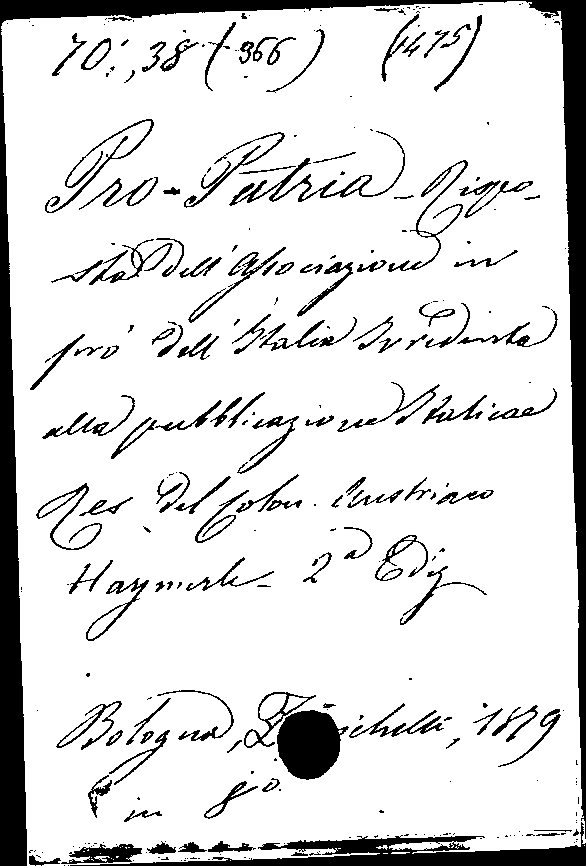 70:,38 (366) (1475)
Pro-Patria - Rispo-
sta dell' Associazione in
prò dell' Italia Irredenta
alla pubblicazione Italicae
Res del Colon. Austriaco
Haymerle - 2a Ediz
Bologna, Zanichelli, 1879
in 8o